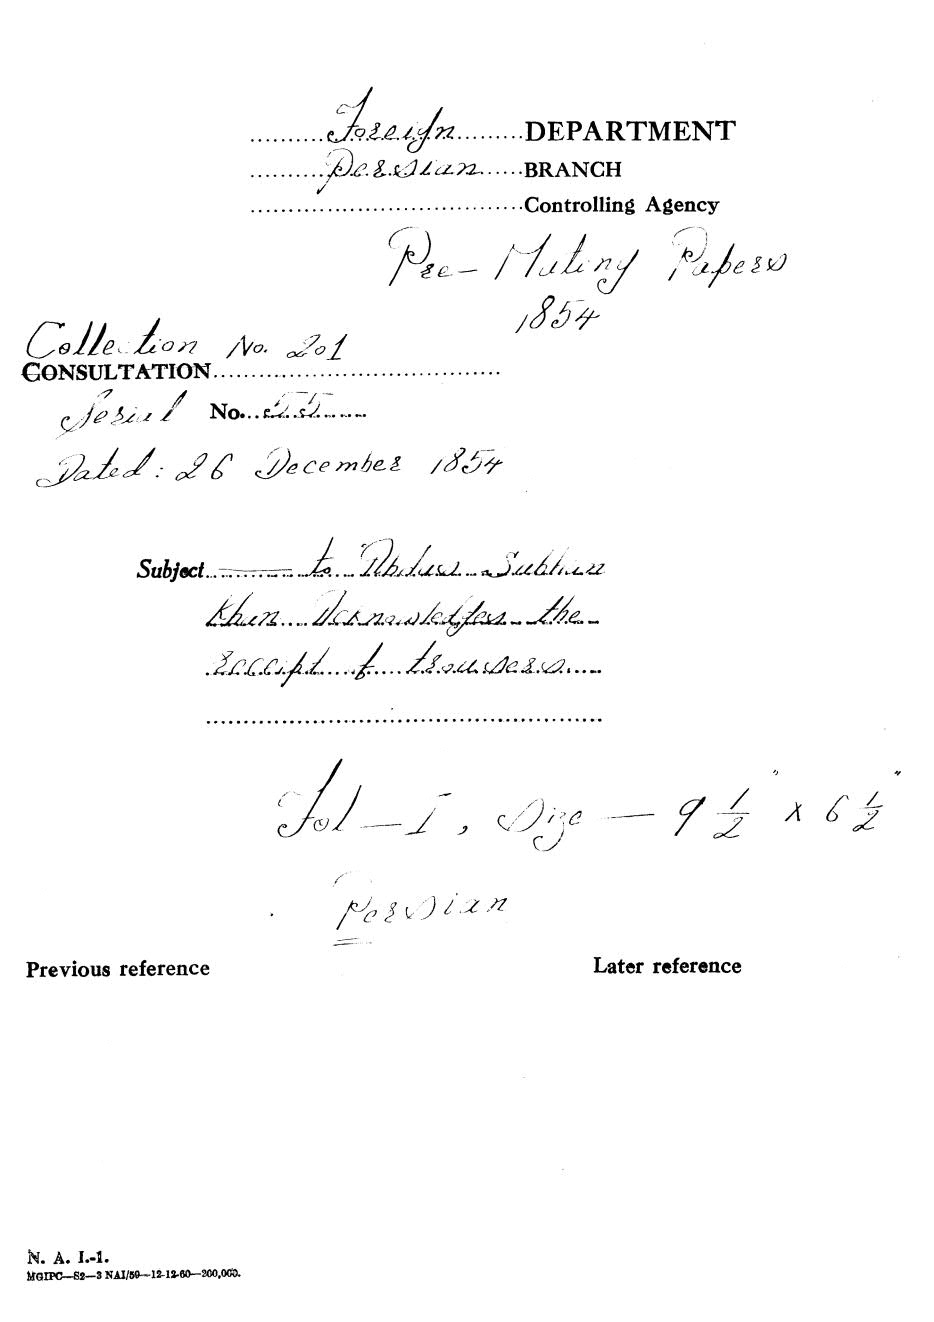 Foreign DEPARTMENT
Persian BRANCH
Controlling Agency
Pre-Mutiny Papers
1854
Collection No. 201
CONSULTATION
Serial No. 55
Dated: 26 December 1854
Subject to Abdus Subhan
Khan Acknowledges the
receipt of trousers
Fol - I, Size - 9 1/2" x 6 1/2"
Persian
Previous reference Later reference
N. A. I.-1.
MGIPC—S2—3 NAI/59—12-12-60—200,000.